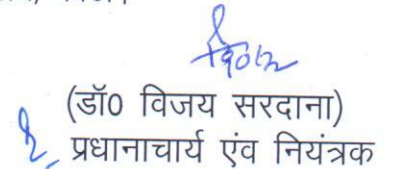 (डॉ0 विजय सरदाना)
प्रधानाचार्य एंव नियंत्रक